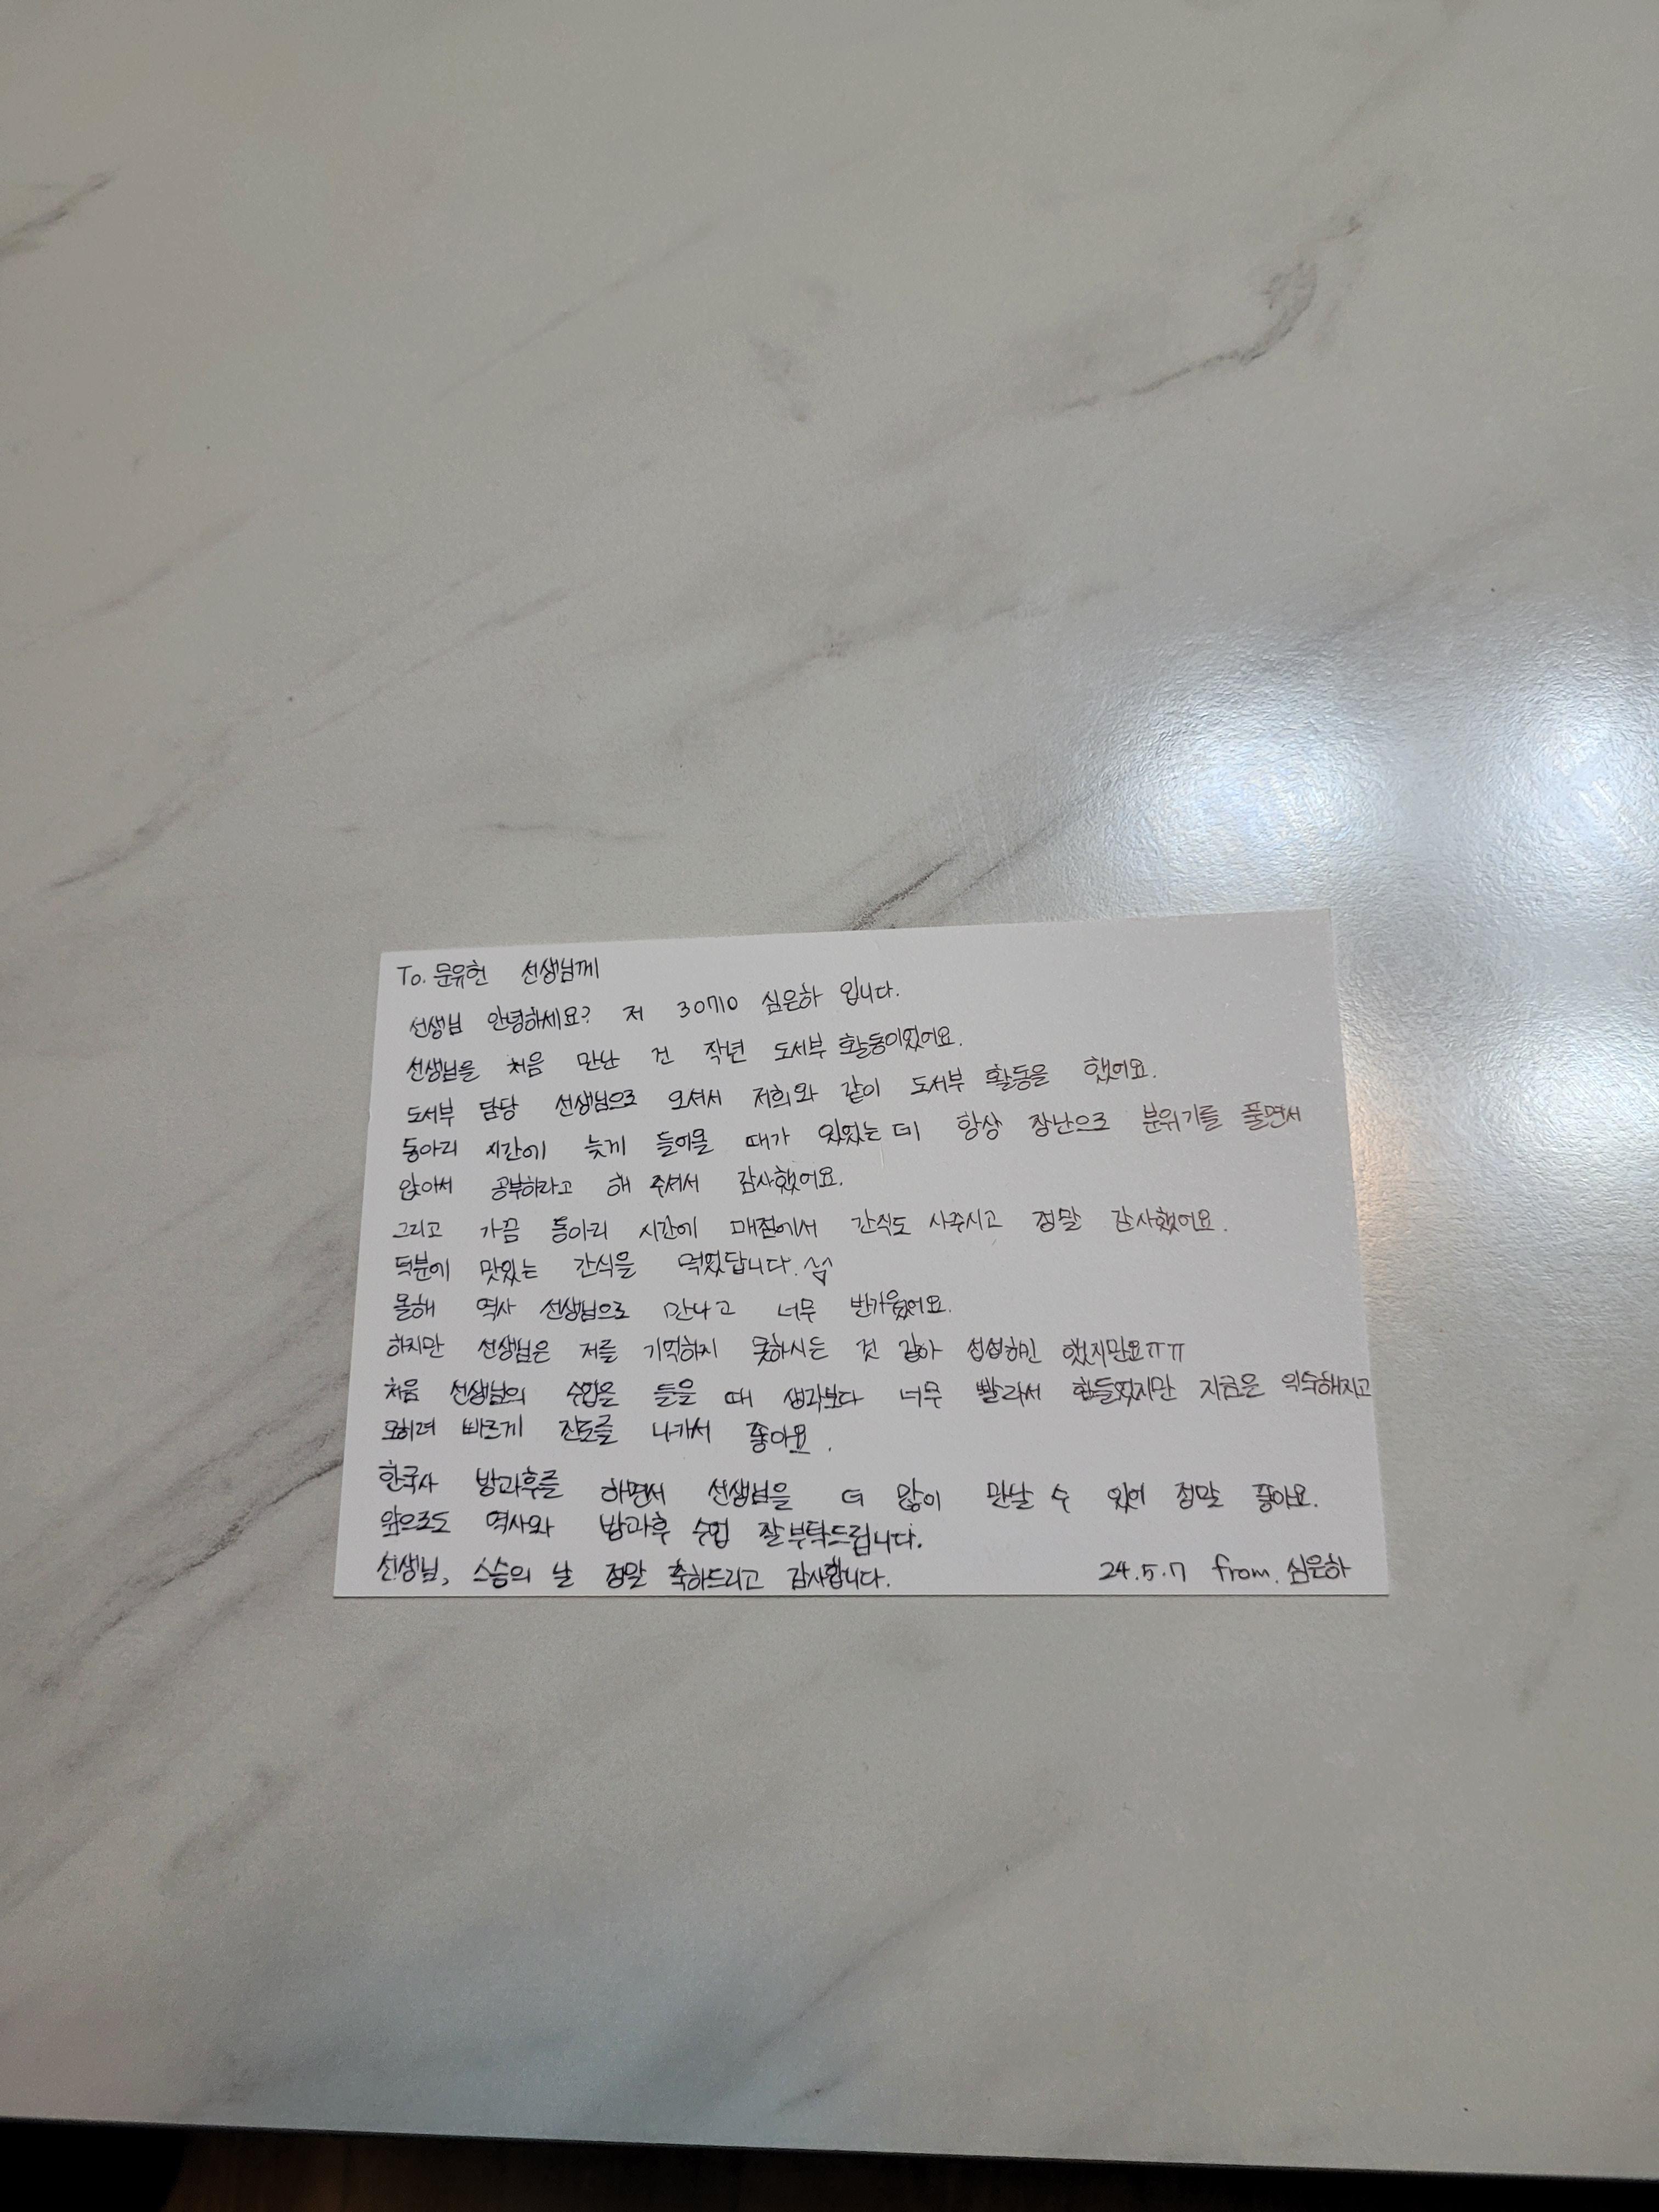 To. 문유헌 선생님께
선생님 안녕하세요? 저 30710 심은하 입니다.
선생님을 처음 만난 건 작년 도서부 활동이었어요.
도서부 담당 선생님으로 오셔서 저희와 같이 도서부 활동을 했어요.
동아리 시간에 늦게 들어올 때가 있었는데 항상 장난으로 분위기를 풀면서
앉아서 공부하라고 해 주셔서 감사했어요.
그리고 가끔 동아리 시간에 매점에서 간식도 사주시고 정말 감사했어요.
덕분에 맛있는 간식을 먹었답니다.
올해 역사 선생님으로 만나고 너무 반가웠어요.
하지만 선생님은 저를 기억하지 못하시는 것 같아 섭섭하긴 했지만요ㅠㅠ
처음 선생님의 수업을 들을 때 생각보다 너무 빨라서 힘들었지만 지금은 익숙해지고
오히려 빠르게 진도를 나가서 좋아요.
한국사 방과후를 하면서 선생님을 더 많이 만날 수 있어 정말 좋아요.
앞으로도 역사와 방과후 수업 잘 부탁드립니다.
선생님, 스승의 날 정말 축하드리고 감사합니다. 24.5.7 from. 심은하